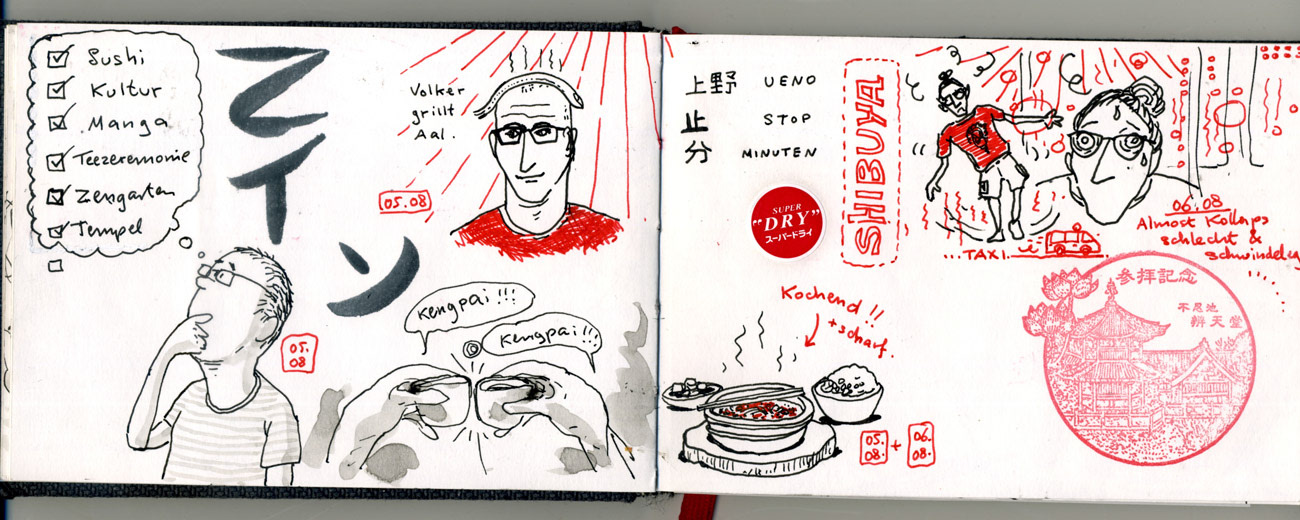 Sushi
Kultur
Manga
Teezeremonie
Zengarten
Tempel
イ
ン
05.
08
Volker
grillt
Aal.
05.08
Kengpai!!!
Kengpai!!
上野 UENO
止 STOP
分 MINUTEN
SUPER
"DRY"
スーパードライ
SHIBUYA
06.08
Almost Kollaps
schlecht &
schwindelig
...TAXI...
Kochend!!
+ scharf.
05.
08.
+
06.
08.
参拝記念
不忍池
辨天堂